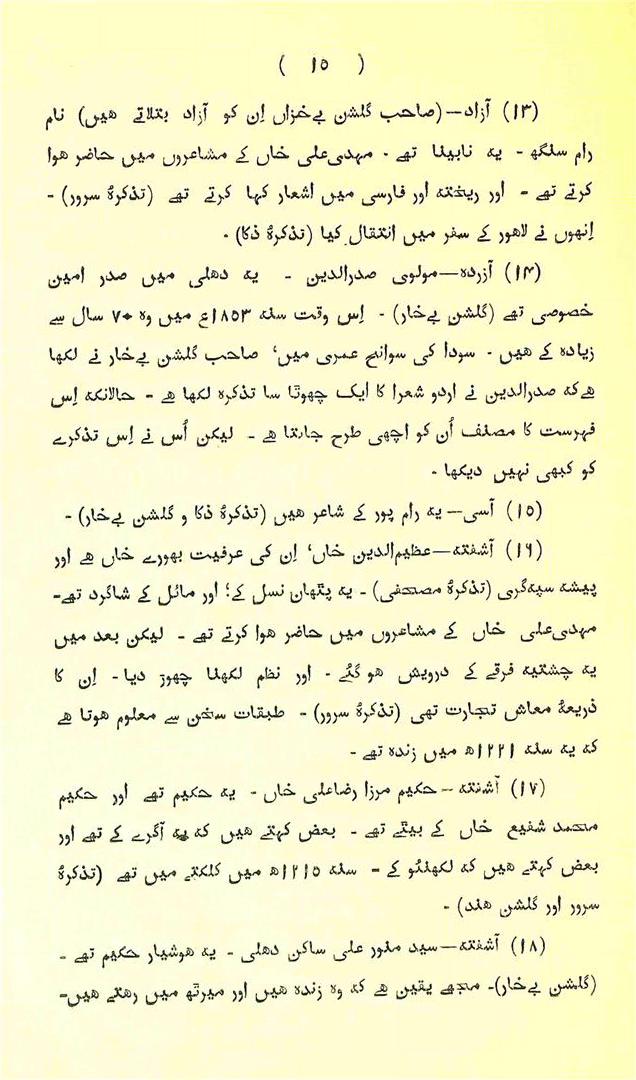 ( ۱۵ )
(۱۳) آزاد—(صاحب گلشن بےخزاں اِن کو آزاد بتلاتے هیں) نام
رام سنگھ - یہ نابینا تھے - مہدی علی خاں کے مشاعروں میں حاضر هوا
کرتے تھے - اور ریختہ اور فارسی میں اشعار کہا کرتے تھے (تذکرۂ سرور) -
اِنھوں نے لاهور کے سفر میں انتقال کیا (تذکرۂ ذکا) -
(۱۴) آزردہ—مولوی صدرالدین - یہ دهلی میں صدر امین
خصوصی تھے (گلشن بےخار) - اِس وقت سنہ ۱۸۵۳ع میں وہ ۷۰ سال سے
زیادہ کے هیں - سودا کی سوانح عمری میں‘ صاحب گلشن بےخار نے لکھا
هےکہ صدرالدین نے اردو شعرا کا ایک چھوٹا سا تذکرہ لکھا هے - حالانکہ اِس
فہرست کا مصنف اُن کو اچھی طرح جانتا هے - لیکن اُس نے اِس تذکرے
کو کبھی نہیں دیکھا -
(۱۵) آسی—یہ رام پور کے شاعر هیں (تذکرۂ ذکا و گلشن بےخار) -
(۱۶) آشفتہ—عظیم‌الدین خاں‘ اِن کی عرفیت بھورے خاں هے اور
پیشہ سپہ‌گری (تذکرۂ مصحفی) - یہ پٹھان نسل کے؛ اور مائل کے شاگرد تھے-
مہدی علی خاں کے مشاعروں میں حاضر هوا کرتے تھے - لیکن بعد میں
یہ چشتیہ فرقے کے درویش هو گئے - اور نظم لکھنا چھوڑ دیا - اِن کا
ذریعۂ معاش تجارت تھی (تذکرۂ سرور) - طبقات سخن سے معلوم هوتا هے
کہ یہ سنہ ۱۲۲۱ھ میں زندہ تھے -
(۱۷) آشفتہ—حکیم مرزا رضاعلی خاں - یہ حکیم تھے اور حکیم
محمد شفیع خاں کے بیٹے تھے - بعض کہتے هیں کہ یہ آگرے کے تھے اور
بعض کہتے هیں کہ لکھنئو کے - سنہ ۱۲۱۵ھ میں کلکتے میں تھے (تذکرۂ
سرور اور گلشن هند) -
(۱۸) آشفتہ—سید منور علی ساکن دهلی - یہ هوشیار حکیم تھے -
(گلشن بےخار)- مجھے یقین هے کہ وہ زندہ هیں اور میرٹھ میں رهتے هیں-